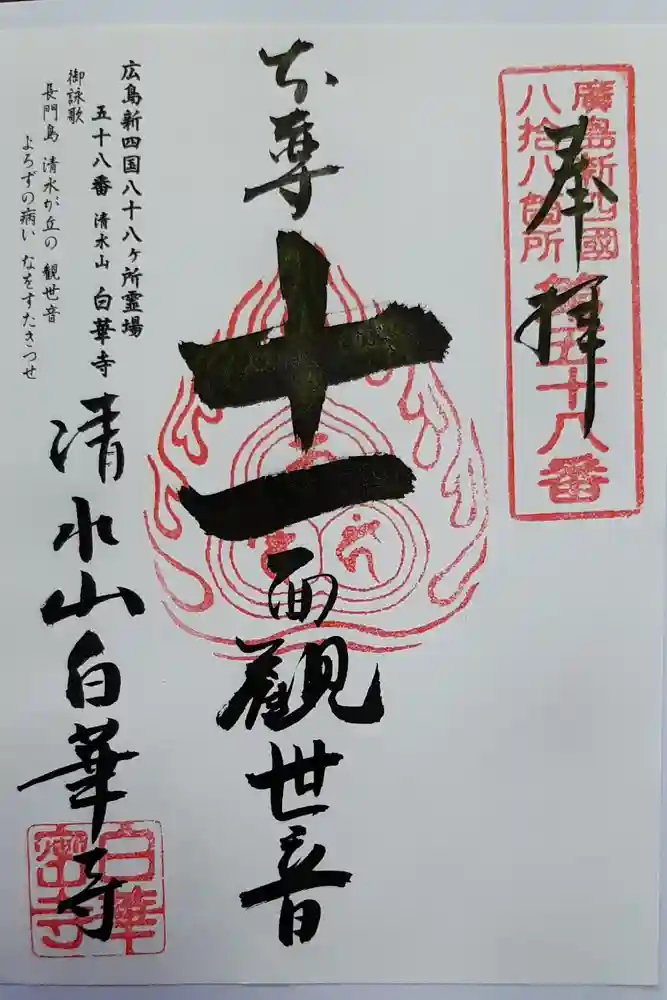 奉拝
廣島新四國
八拾八箇所
第五十八番
本尊
十一面観世音
清水山白華寺
広島新四国八十八ヶ所霊場
五十八番 清水山 白華寺
御詠歌
長門島 清水が丘の 観世音
よろずの病い なをすたきつせ
白華
密寺